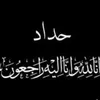 حداد
إنا لله وإنا إليه راجعون